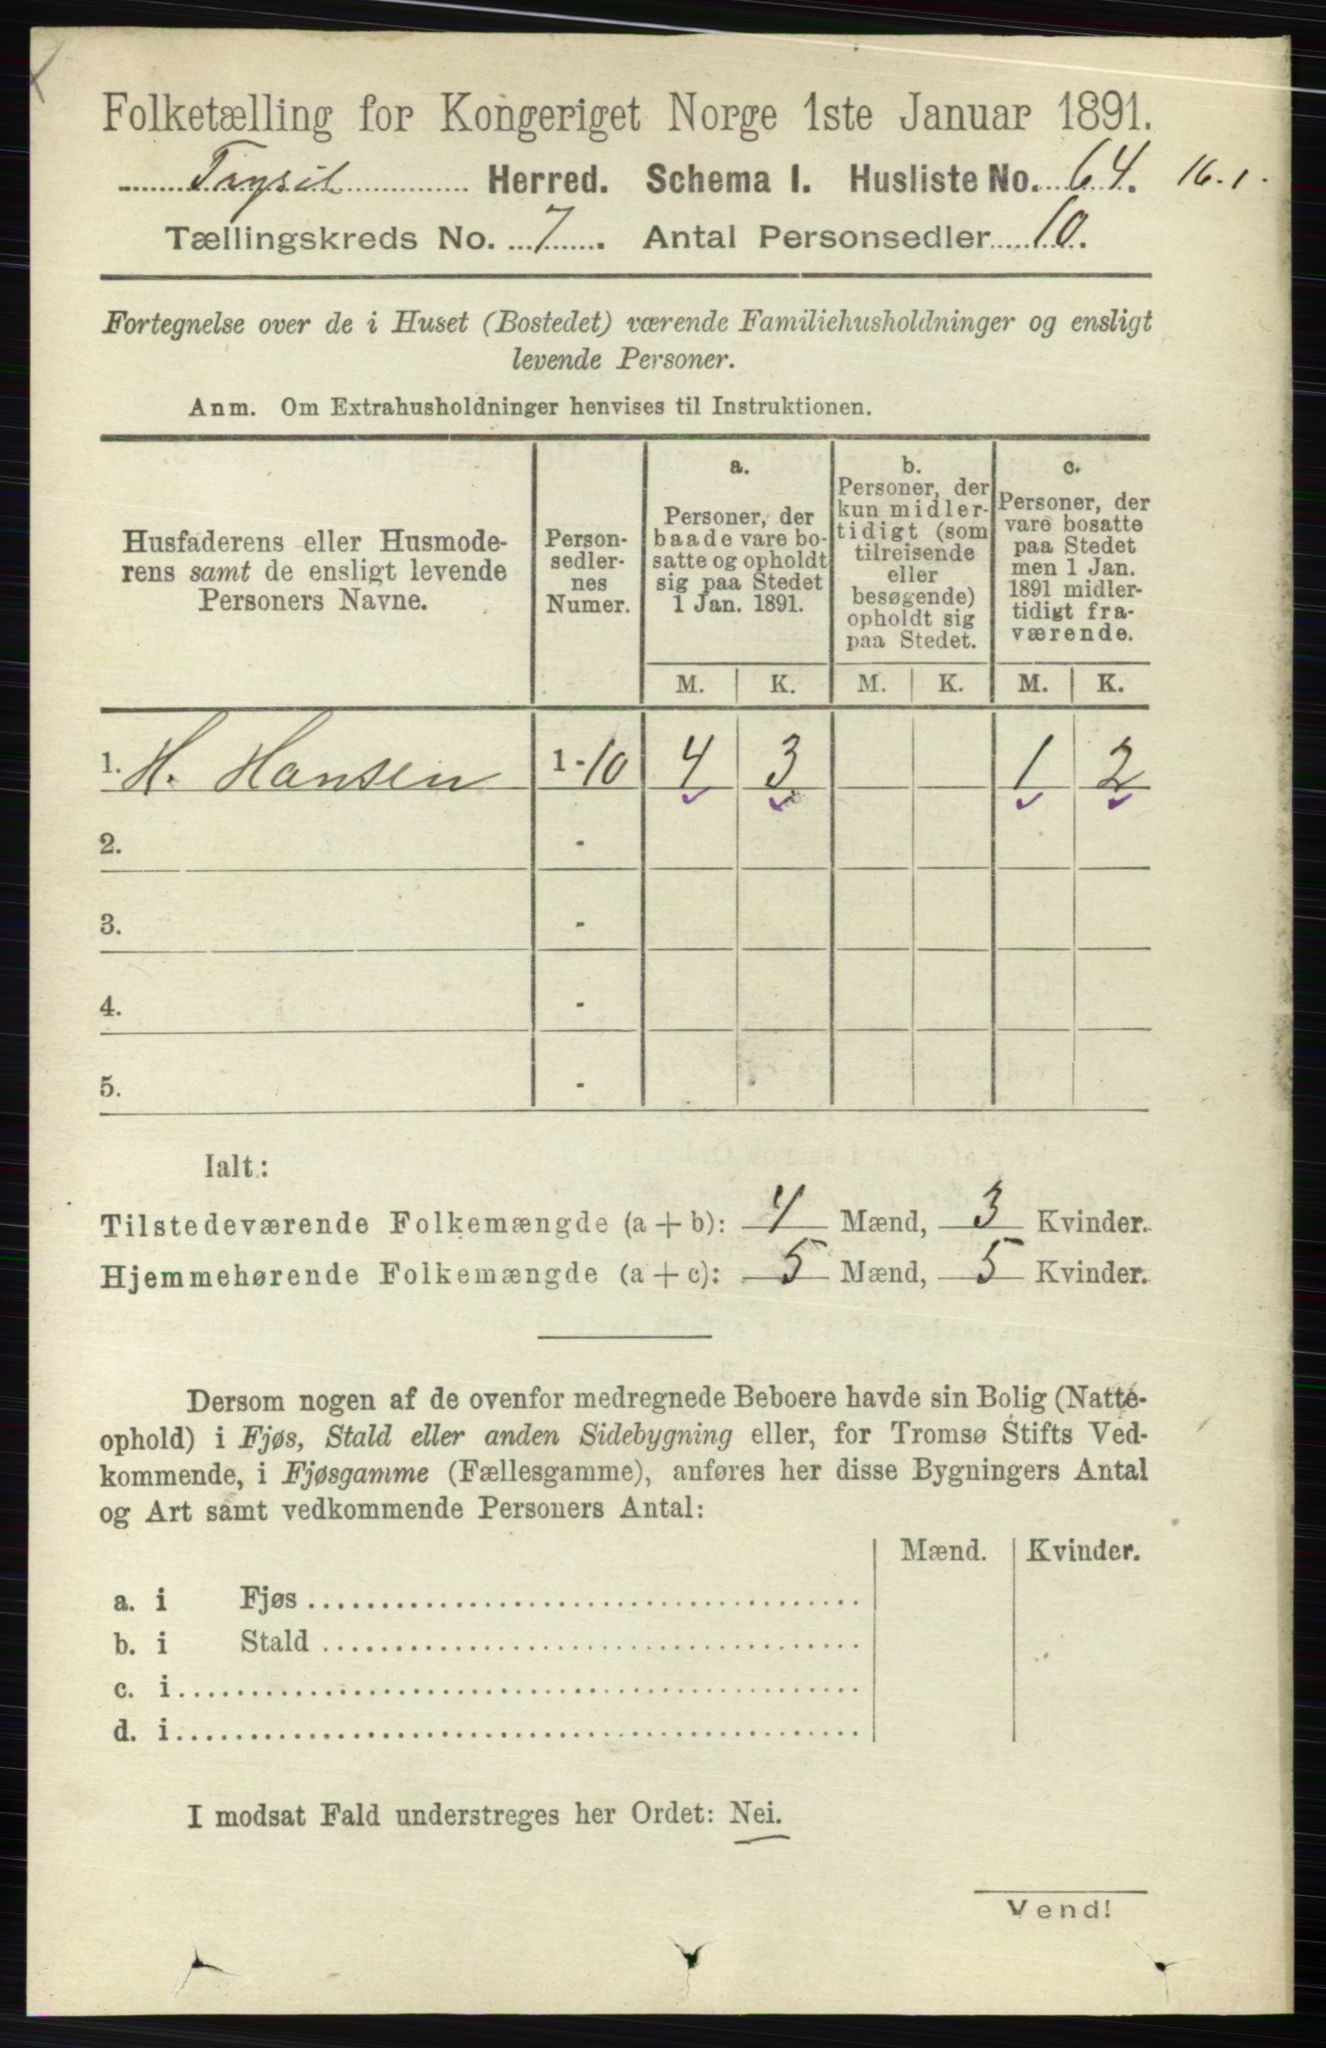 Folketælling for Kongeriget Norge 1ste Januar 1891.
Trysil Herred. Schema I. Husliste No. 64. 16.1.
Tællingskreds No. 7. Antal Personsedler 10.
Fortegnelse over de i Huset (Bostedet) værende Familiehusholdninger og ensligt
levende Personer.
Anm. Om Extrahusholdninger henvises til Instruktionen.
Husfaderens eller Husmode-
rens samt de ensligt levende
Personers Navne.
Person-
sedler-
nes
Numer.
a.
Personer, der
baade vare bo-
satte og opholdt
sig paa Stedet
1 Jan. 1891.
b.
Personer, der
kun midler-
tidigt (som
tilreisende
eller
besøgende)
opholdt sig
paa Stedet.
c.
Personer, der
vare bosatte
paa Stedet
men 1 Jan.
1891 midler-
tidigt fra-
værende.
M. K. M. K. M. K.
1. H. Hansen 1-10 4 3 1 2
2. -
3. -
4. -
5. -
Ialt:
Tilstedeværende Folkemængde (a+b): 4 Mænd, 3 Kvinder.
Hjemmehørende Folkemængde (a+c): 5 Mænd, 5 Kvinder.
Dersom nogen af de ovenfor medregnede Beboere havde sin Bolig (Natte-
ophold) i Fjøs, Stald eller anden Sidebygning eller, for Tromsø Stifts Ved-
kommende, i Fjøsgamme (Fællesgamme), anføres her disse Bygningers Antal
og Art samt vedkommende Personers Antal:
Mænd. Kvinder.
a. i Fjøs
b. i Stald
c. i
d. i
I modsat Fald understreges her Ordet: Nei.
Vend!